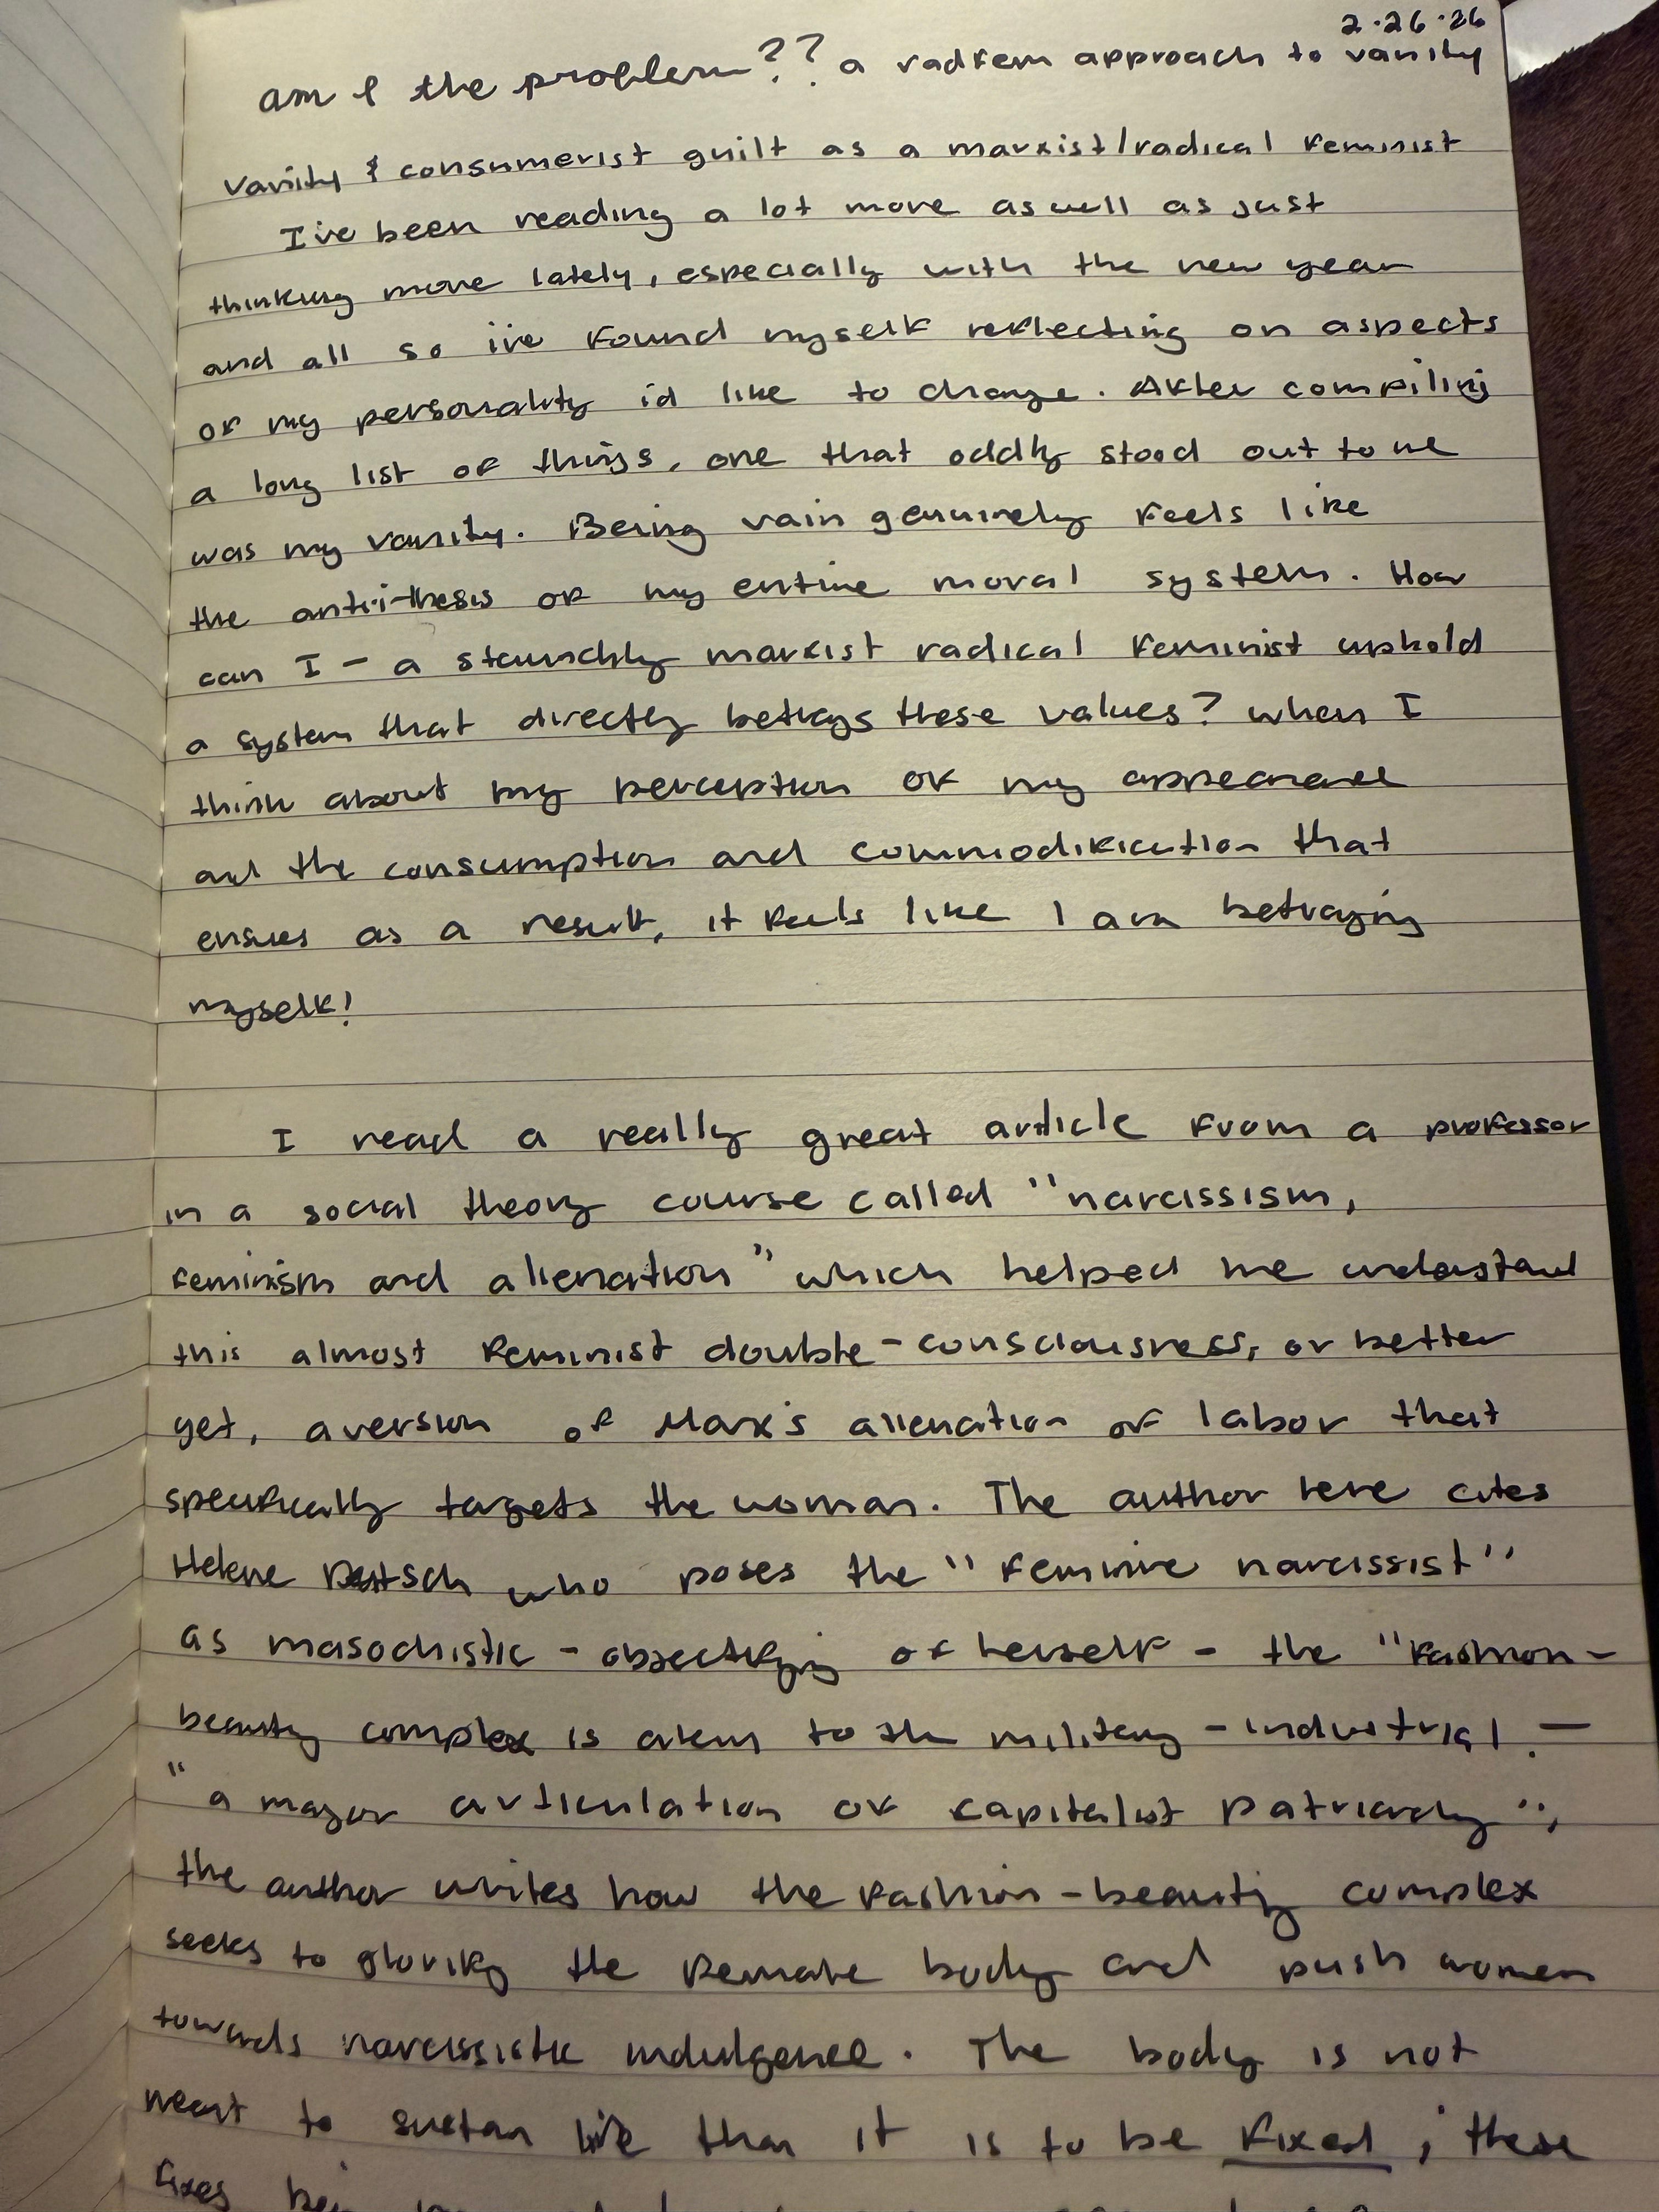 2·26·26
am I the problem?? a radfem approach to vanity
vanity & consumerist guilt as a marxist/radical feminist
I've been reading a lot more as well as just
thinking more lately, especially with the new year
and all so i've found myself reflecting on aspects
of my personality i'd like to change. After compiling
a long list of things, one that oddly stood out to me
was my vanity. Being vain genuinely feels like
the anti-thesis of my entire moral system. How
can I - a staunchly marxist radical feminist uphold
a system that directly betrays these values? when I
think about my perception of my appearance
and the consumption and commodification that
ensues as a result, it feels like I am betraying
myself!
I read a really great article from a professor
in a social theory course called "narcissism,
feminism and alienation" which helped me understand
this almost feminist double-consciousness, or better
yet, a version of Marx's alienation of labor that
specifically targets the woman. The author here cites
Helene Deutsch who poses the "feminine narcissist"
as masochistic - objectifying of herself - the "fashion-
beauty complex is akin to the military-industrial -
"a major articulation of capitalist patriarchy",
the author writes how the fashion-beauty complex
seeks to glorify the female body and push women
towards narcissistic indulgence. The body is not
meant to sustain life than it is to be fixed; these
fixes